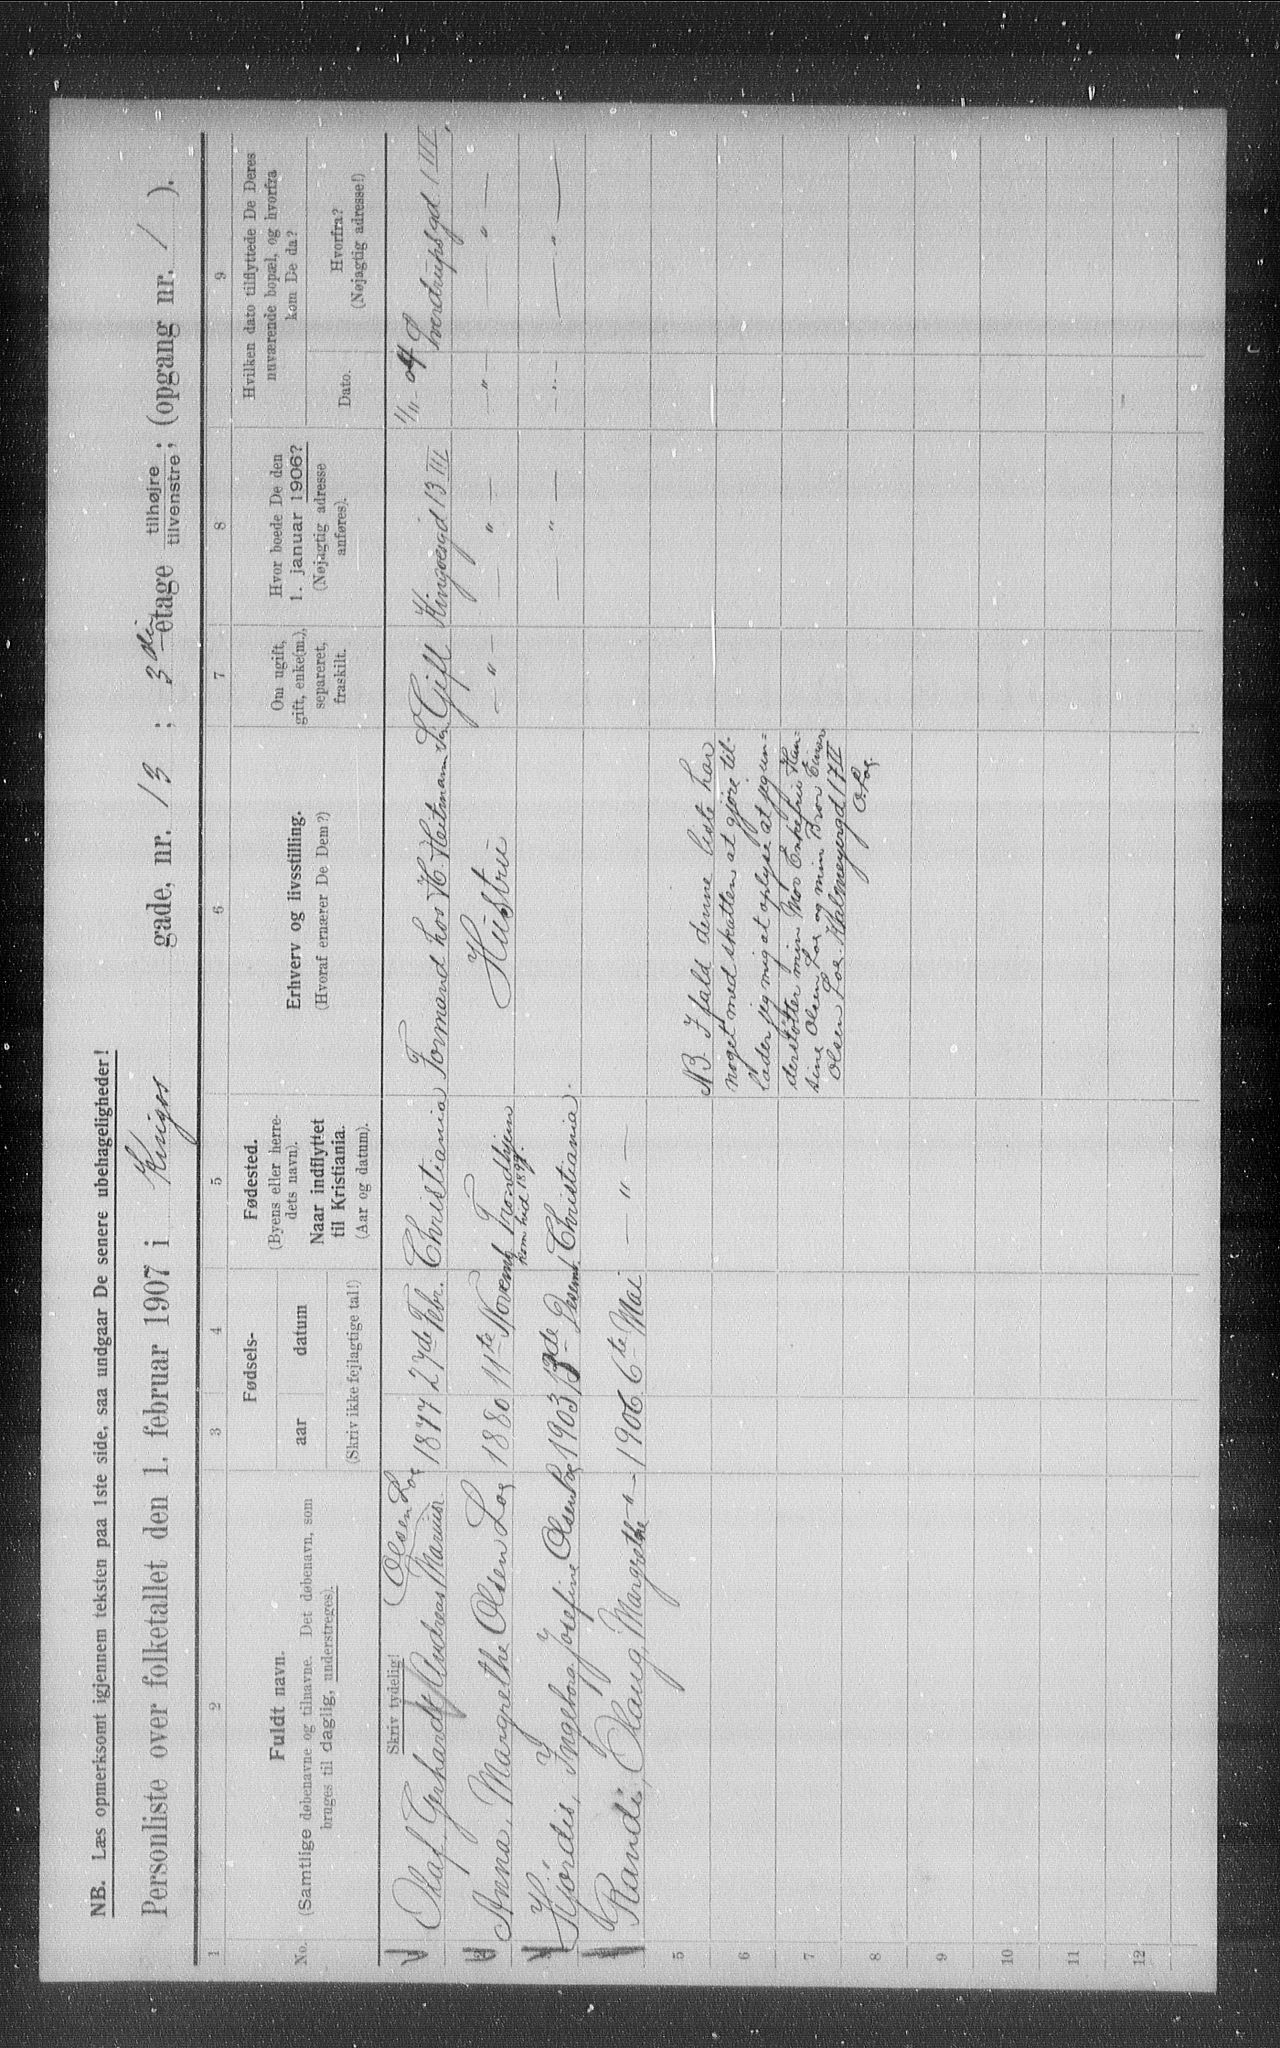 NB. Læs opmerksomt igjennem teksten paa 1ste side, saa undgaar De senere ubehageligheder!
Personliste over folketallet den 1. februar 1907 i Kingos gade, nr. 13 ; 3die etage tilhøjre tilvenstre ; (opgang nr. 1 ).
1 2 3 4 5 6 7 8 9
No.
Fuldt navn.
(Samtlige døbenavne og tilnavne. Det døbenavn, som
bruges til daglig, understreges).
Fødsels-
aar datum
(Skriv ikke fejlagtige tal!)
Fødested.
(Byens eller herre-
dets navn).
Naar indflyttet
til Kristiania.
(Aar og datum).
Erhverv og livsstilling.
(Hvoraf ernærer De Dem?)
Om ugift,
gift, enke(m.),
separeret,
fraskilt.
Hvor boede De den
1. januar 1906?
(Nøjagtig adresse
anføres).
Hvilken dato tilflyttede De Deres
nuværende bopæl, og hvorfra
kom De da?
Dato.
Hvorfra?
(Nøjagtig adresse!)
Skriv tydelig!
Olaf, Gerhardt Andreas Marius Olsen Loe 1877 27de Febr. Christiania Formand hos H. Heitmann Gift Kingosgd 13 III 1/11-04 Sverdrupsgd 1 III
Anna, Margrethe Olsen Loe 1880 11te Novemb Trondhjem Hustru — " — — " — — " — — " —
kom hid 1899.
Hjördis, Ingeborg Josefine Olsen Loe 1903 de Desemb. Christiania. — " — — " — — " —
Randi, Olaug, Margrethe — " — 1906 6te Mai — " —
5
6
7
8
9
10
11
12
NB I fald denne liste har
noget med skatten at gjøre til-
lader jeg mig at oplyse at jeg un=
derstøtter min Mor Enkefru Han=
sine Olsen Loe og min Bror Einar
Olsen Loe. Hałmeyersgd 17 II
O. Loe